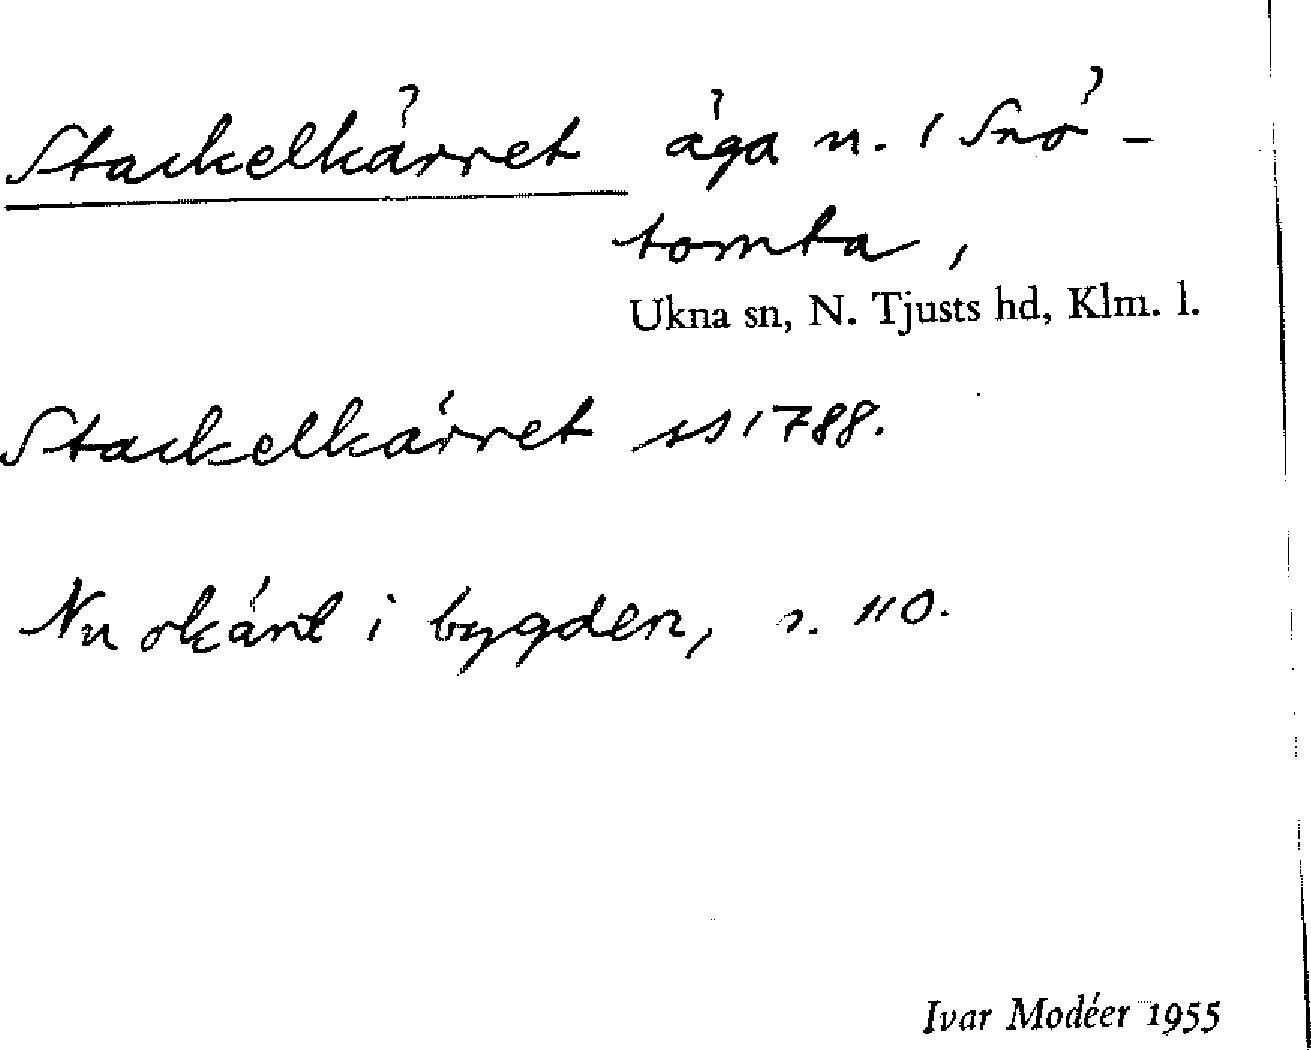 Stackelkärret äga n. i Snö-
tomta,
Ukna sn, N. Tjusts hd, Klm. l.
Stackelkärret ss 1788.
Nu okänt i bygden, s. 110.
Ivar Modéer 1955